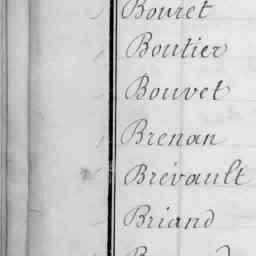 Bouret
Boutier
Bouvet
Brenan
Brévault
Briand